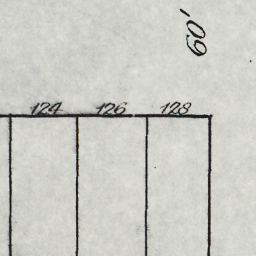 60'
124 126 128